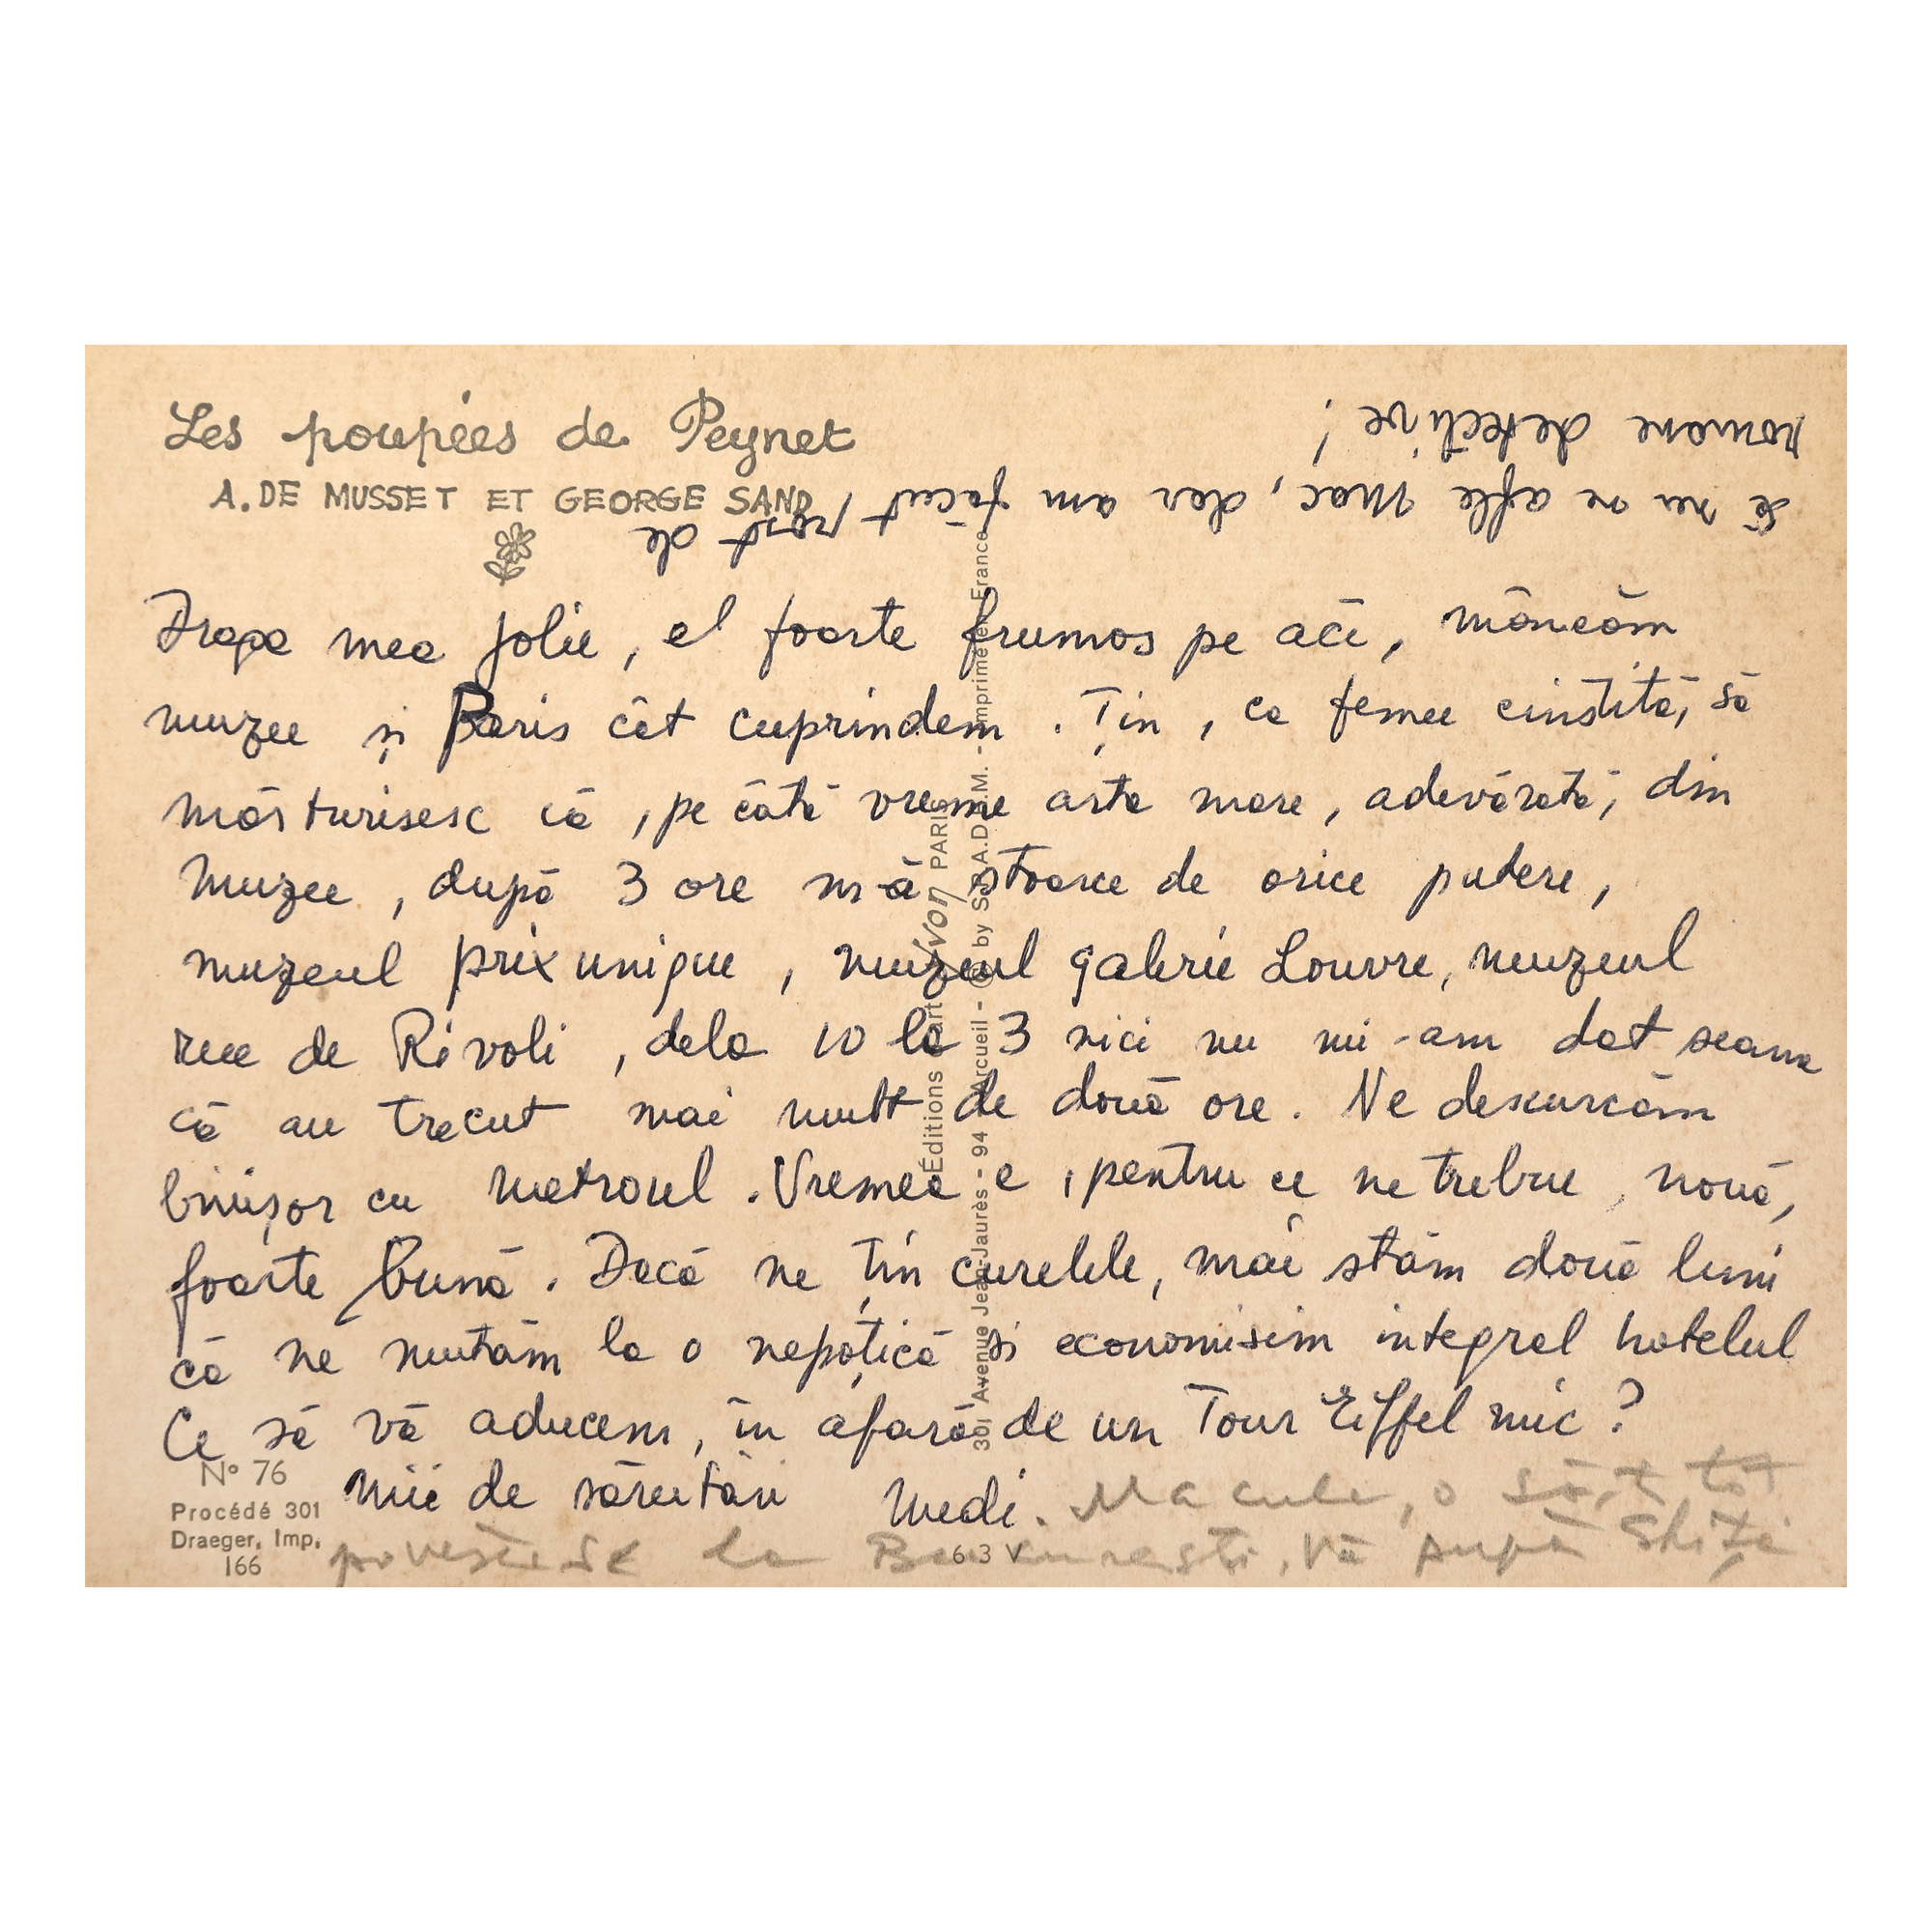 Les poupées de Peynet
A. DE MUSSET ET GEORGE SAND
Draga mea Jolie, el foarte frumos pe aci, mâncăm
muzee și Paris cât cuprindem. Țin, ca femee cinstită, să
mărturisesc că, pe câtă vreme arta mare, adevărată, din
muzee, după 3 ore mă stoarce de orice putere,
muzeul prix unique, muzeul galerie Louvre, muzeul
rue de Rivoli, dela 10 la 3 nici nu mi-am dat seama
că au trecut mai mult de două ore. Ne descurcăm
binișor cu metroul. Vremea e, pentru ce ne trebue, nouă,
foarte bună. Dacă ne țin curelele, mai stăm două luni
că ne mutăm la o nepoțică si economisim integral hotelul
Ce să vă aducem, în afară de un Tour Eiffel mic?
mii de sărutări Medi.
Să nu ne afle Mac, dar am făcut rost de
romane detective!
o să-ț tot
povestesc la București, Vă pupă
Éditions d'art Yvon PARIS
301 Avenue Jean-Jaurès - 94 Arcueil - © by S.P.A.D.E.M. - Imprimé en France
N° 76
Procédé 301
Draeger, Imp.
166
63 V